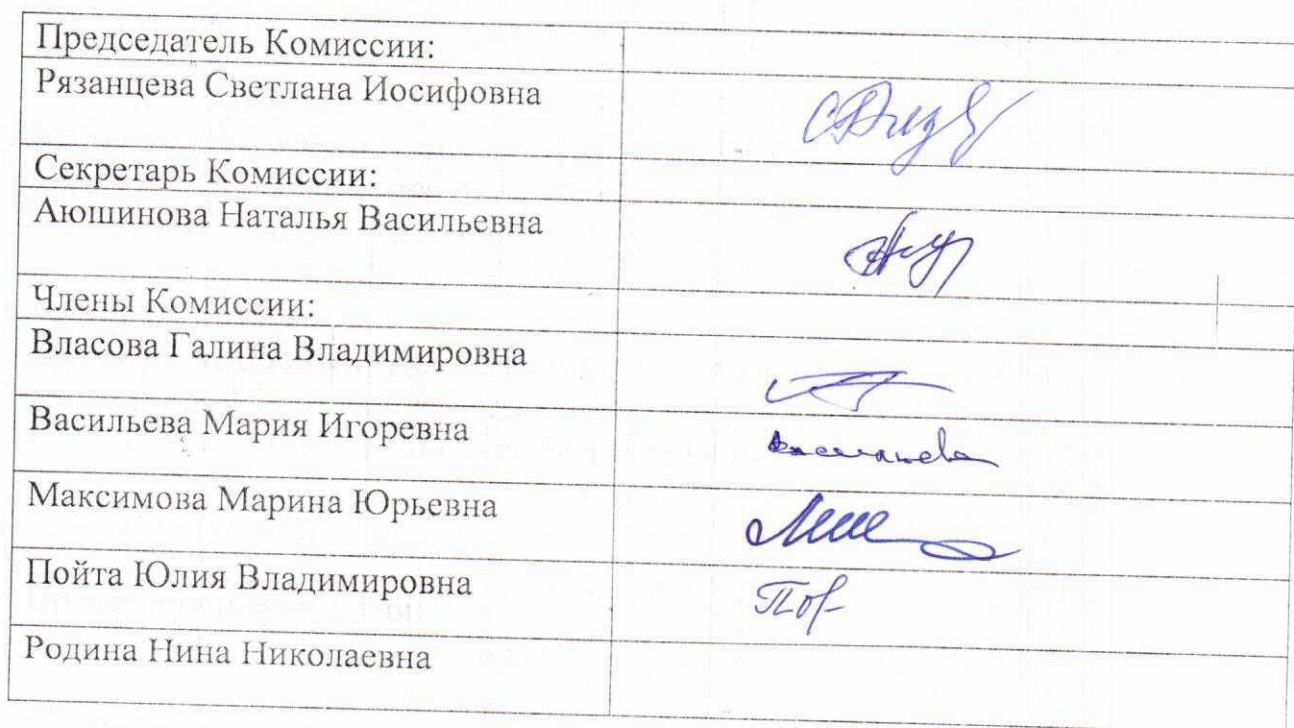 Председатель Комиссии:
Рязанцева Светлана Иосифовна
Секретарь Комиссии:
Аюшинова Наталья Васильевна
Члены Комиссии:
Власова Галина Владимировна
Васильева Мария Игоревна
Максимова Марина Юрьевна
Пойта Юлия Владимировна
Родина Нина Николаевна